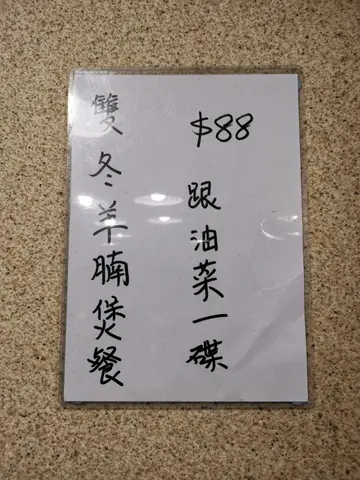 雙冬羊腩煲餐
$88
跟油菜一碟